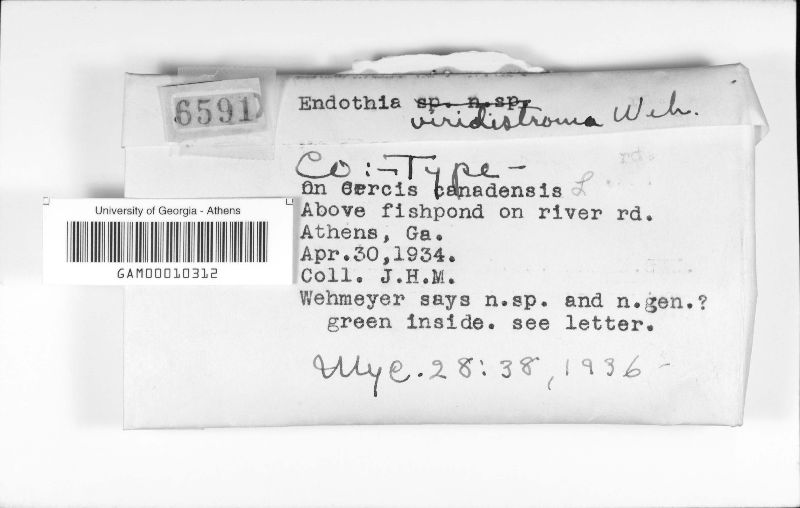 6591
Endothia sp. n.sp.
viridistroma Weh.
Co:-Type-
On Cercis canadensis L
rd.
Above fishpond on river rd.
Athens, Ga.
Apr.30,1934.
Coll. J.H.M.
Wehmeyer says n.sp. and n.gen.?
green inside. see letter.
Myc. 28:38, 1936-
University of Georgia - Athens
GAM00010312